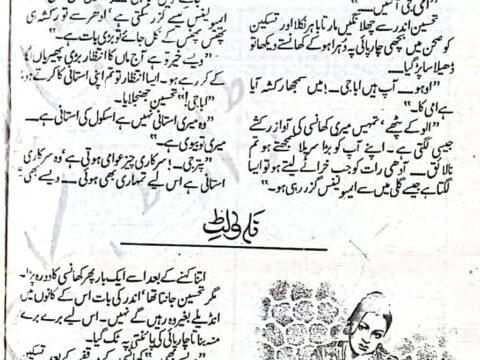 امی جی آ گئیں۔"
تحسین اندر سے چھلانگیں مارتا باہر نکلا اور تسکین
کو صحن میں بچھی چارپائی پہ دہرا ہو کے کھانستے دیکھا تو
ڈھیلا سا پڑ گیا۔
"اوہو۔ آپ ہیں ابا جی۔ میں سمجھا رکشہ آیا
ہے امی کا۔"
"الو کے پٹھے، تمہیں میری کھانسی کی آواز رکشے
جیسی لگتی ہے۔ اپنے آپ کو بڑا سریلا سمجھتے ہو تم
نالائق۔ آدھی رات کو جب خراٹے لیتے ہو تو ایسا
لگتا ہے جیسے گلی میں سے ایمبولینس گزر رہی ہو۔"
ایمبولینس کیسے گزر سکتی ہے، ادھر سے تو رکشہ ہی
پھنس پھنس کے نکل جائے تو بڑی بات ہے۔"
"ویسے خیر تو ہے آج ماں کا انتظار بڑی بے صبری
کے کر رہے ہو۔ ایسا انتظار تو تم اپنی استانی کا کرتے ہو۔
"ابا جی!" تحسین جھنجلایا۔
"وہ میری استانی نہیں ہے اسکول کی استانی ہے۔
میری تو بیوی ہے۔"
"پتر جی۔! سرکاری چیز عوامی ہوتی ہے، وہ سرکاری
استانی ہے اس لیے تمہاری بھی ہوئی۔ ویسے بھی"
اتنا کہنے کے بعد اسے ایک بار پھر کھانسی کا دورہ پڑا۔
مگر تحسین جانتا تھا، اندر کی بات اس کے کانوں میں
انڈیلے بغیر وہ رہیں گے نہیں۔ اس لیے برے برے
منہ بناتا چارپائی کی پائنتی پہ ٹک گیا۔